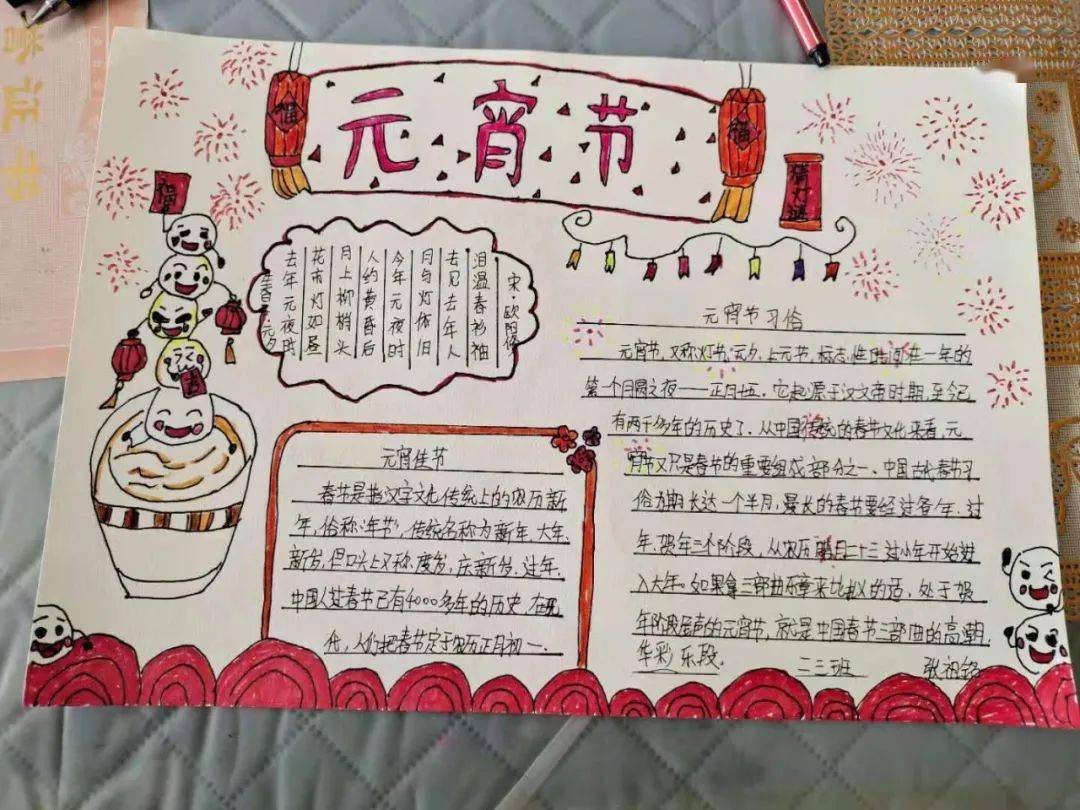 元宵节
福
福
猜灯谜
福
生查子·元夕
去年元夜时
花市灯如昼
月上柳梢头
人约黄昏后
今年元夜时
月与灯依旧
去见去年人
泪温春衫袖
宋·欧阳修
元宵佳节
春节是指汉字文化传统上的农历新
年,俗称“年节”,传统名称为新年、大年、
新岁,但口头上又称、度岁、庆新岁、过年、
中国人过春节已有4000多年的历史 在现
代,人们把春节定于农历正月初一.
元宵节习俗
元宵节,又称灯节、元夕、上元节,标志性时间在一年的
第一个月圆之夜——正月十五。它起源于汉文帝时期,至今已
有两千多年的历史了。从中国传统的春节文化来看,元
宵节又只是春节的重要组成部分之一。中国古代春节习
俗为期长达一个半月,漫长的春节要经过备年、过
年、贺年三个阶段,从农历腊月二十三过小年开始进
入大年。如果拿三部曲乐章来比拟的话,处于贺
年阶段尾声的元宵节,就是中国春节三部曲的高潮、
华彩乐段.
二三班 张祖铭